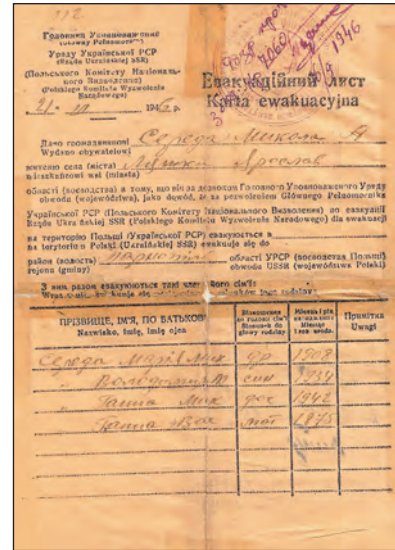 Головний Уповноважений
(Główny Pełnomocnik)
Уряду Української РСР
(Rządu Ukraińskiej SSR)
(Польського Комітету Національ-
ного Визволення)
(Polskiego Komitetu Wyzwolenia
Narodowego)
21 194 р.
1946
Евакуаційний лист
Karta ewakuacyjna
Дано громадянинові Середа Микола
Wydano obywatelowi
жителю села (міста) Ярослав
mieszkańcowi wsi (miasta)
області (воєводства) в тому, що він за дозволом Головного Уповноваженого Уряду
obwodu (województwa), jako dowód, że za pozwoleniem Głównego Pełnomocnika
Української РСР (Польського Комітету Національного Визволення) по евакуації
Rządu Ukraińskiej SSR (Polskiego Komitetu Wyzwolenia Narodowego) dla ewakuacji
на територію Польщі (Української РСР) евакуюється в
na terytorium Polski (Ukraińskiej SSR) ewakuuje się do
район (волость) області УРСР (воєводства Польщі)
rejonu (gminy) obwodu USSR (województwa Polski)
З ним разом евакуюються такі члени його сім'ї:
ПРІЗВИЩЕ, ІМ'Я, ПО БАТЬКОВІ
Nazwisko, imię, imię ojca
Примітка
Uwagi
Середа Марія Мик 1908
" син 1934
" Ганна Мик доч 1942
" Ганна мат 1875